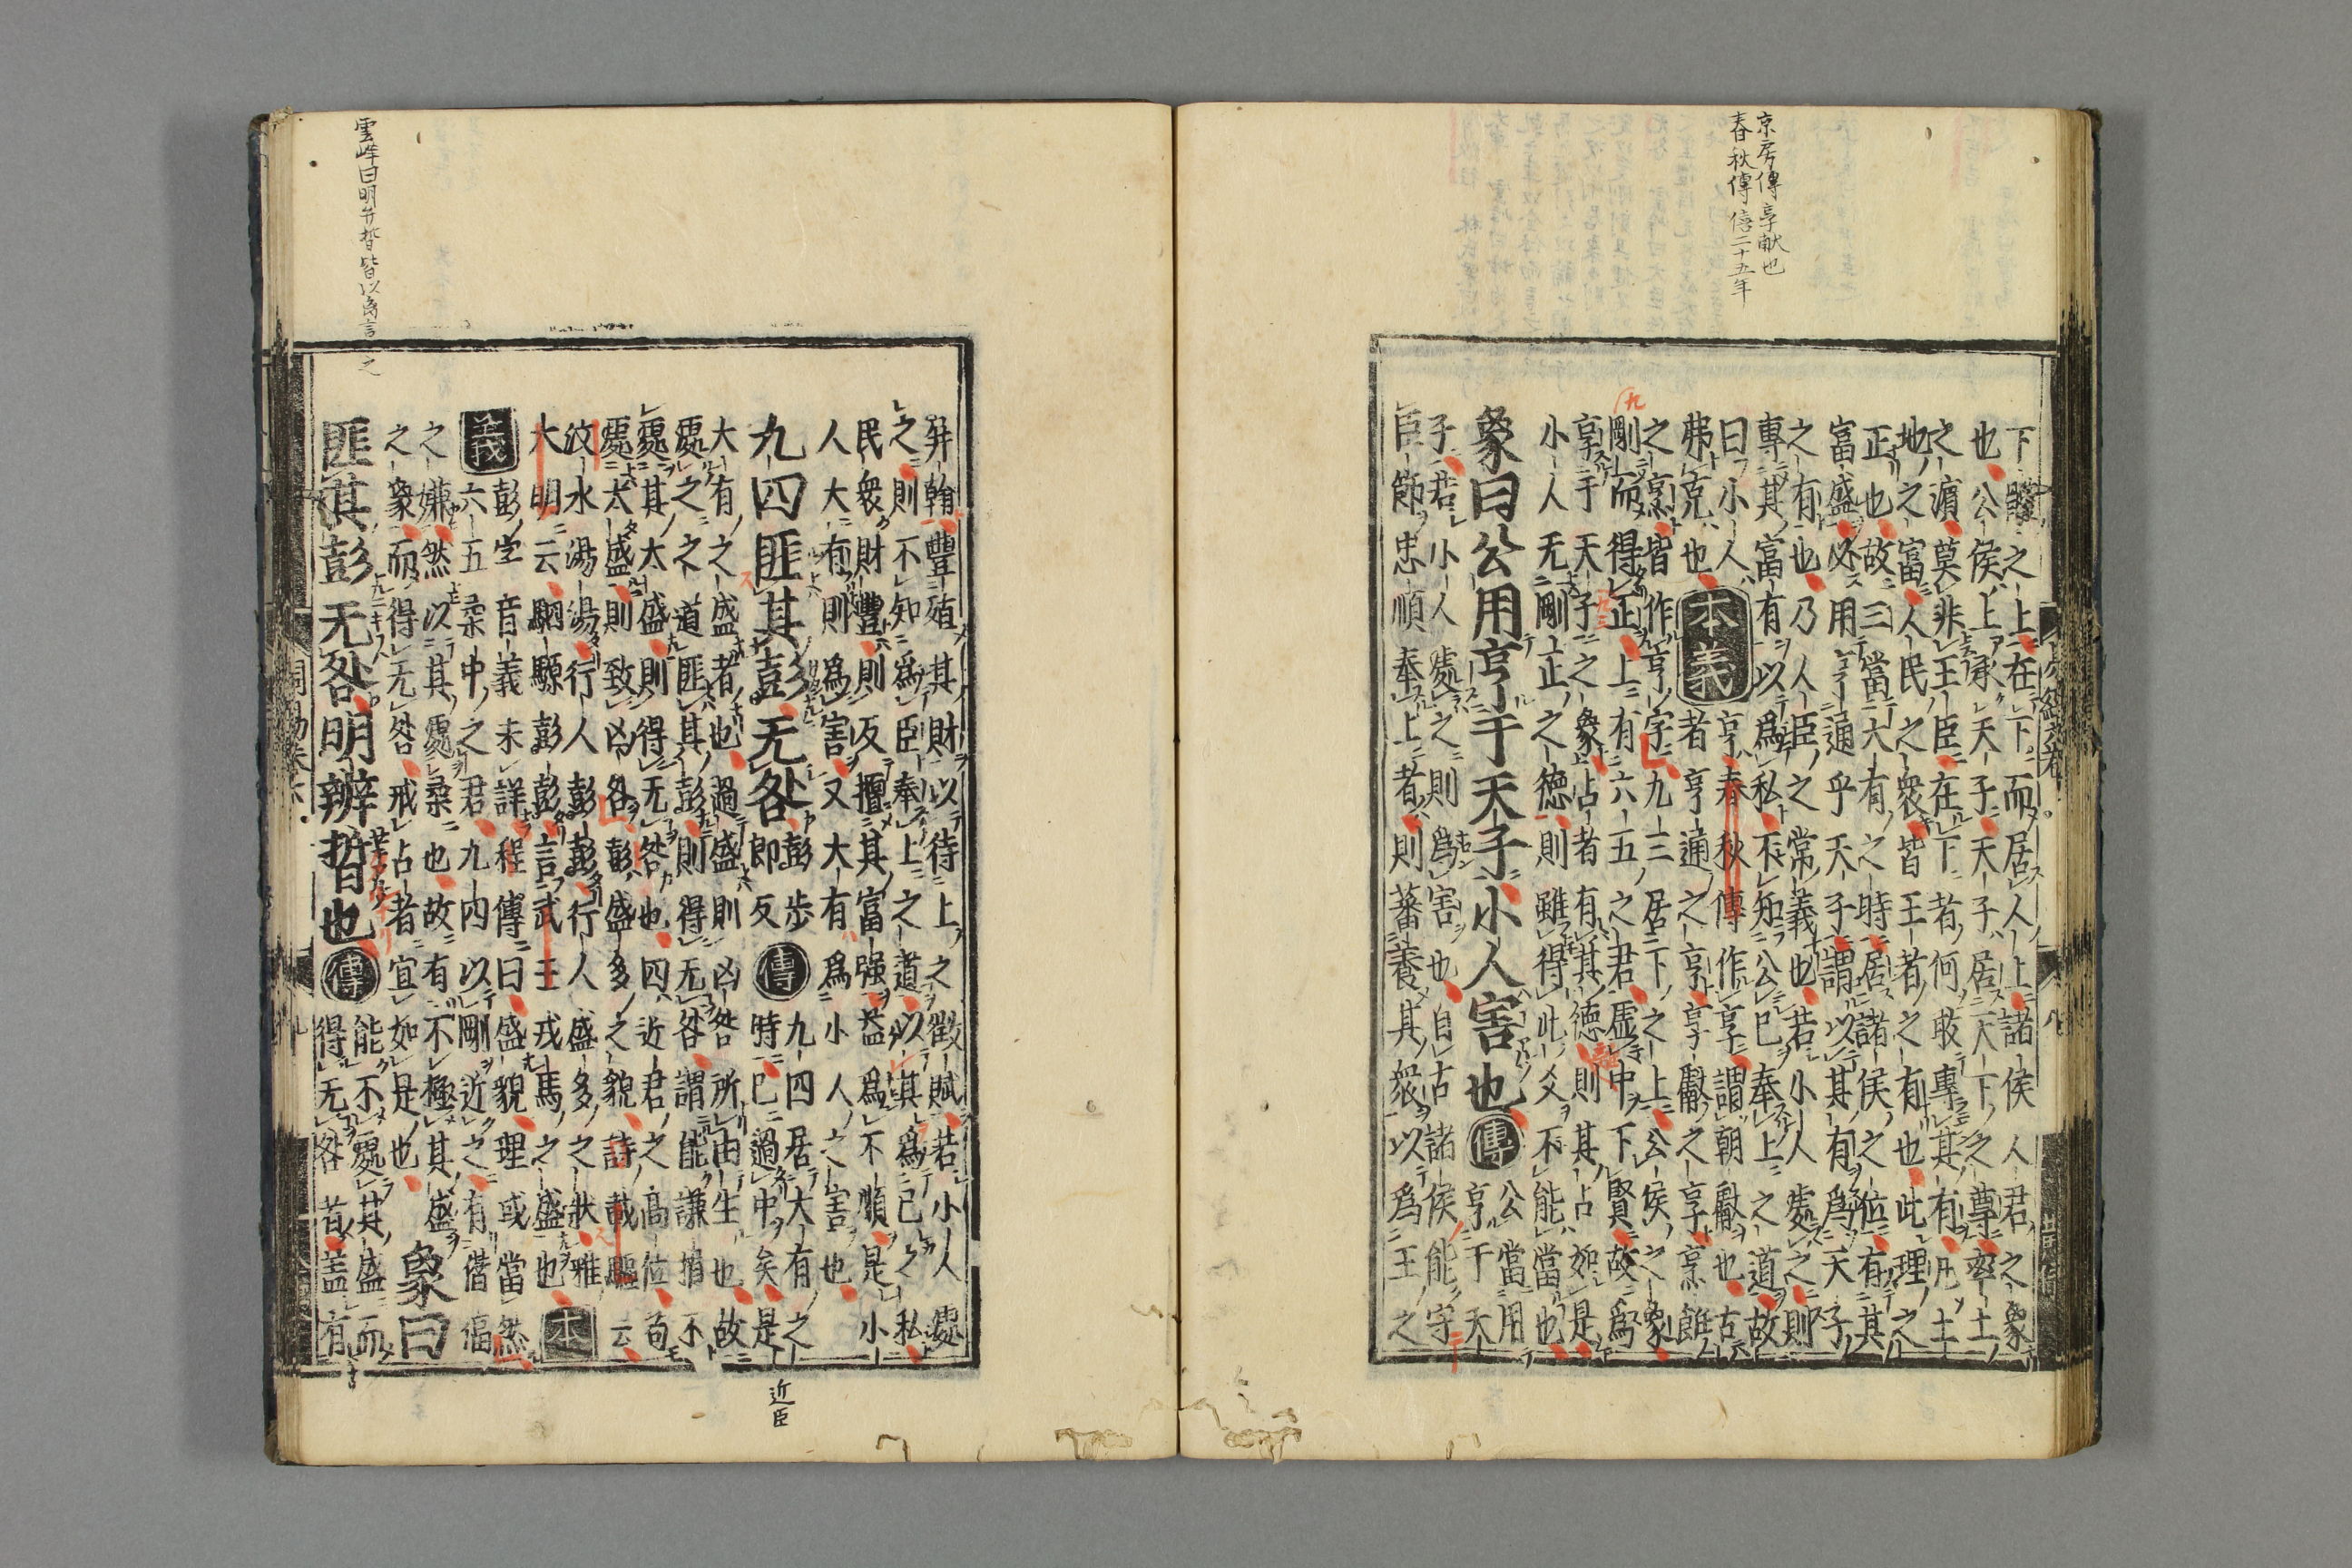 京房傳享献也
春秋傳僖二十五年
下體之上在下而居人上諸侯人君之象
也公侯上承天子天子居天下之尊率土
之濱莫非王臣在下者何敢專其有凡土
地之富人民之衆皆王者之有也此理之
正也故三當大有之時居諸侯之位有其
富盛必用亨通乎天子謂以其有爲天子
之有也乃人臣之常義也若小人處之則
專其富有以爲私不知公己奉上之道故
曰小人
弗克也
本義
亨春秋傳作享謂朝獻也古
者亨通之亨享獻之享烹飪
之烹皆作亨字九三居下之上公侯之象
剛而得正上有六五之君虚中下賢故爲
享于天子之象占者有其德則其占如是
小人无剛正之德則雖得此爻不能當也
象曰公用亨于天子小人害也 傳
公當用
亨于天
子若小人處之則爲害也自古諸侯能守
臣節忠順奉上者則蕃養其衆以爲王之
屏翰豐殖其財以待上之徵賦若小人處
之則不知爲臣奉上之道以其爲己之私
民衆財豐則反擅其富强益爲不順是小
人大有則爲害又大有爲小人之害也
九四匪其彭无咎
彭步
即反
傳
九四居大有之
時已過中矣是
近臣
大有之盛者也過盛則凶咎所由生也故
處之之道匪其彭則得无咎謂能謙損不
處其太盛則得无咎也四近君之高位苟
處太盛則致凶咎彭盛多之貌詩載驅云
汶水湯湯行人彭彭行人盛多之狀雅
大明云駟騵彭彭言武王戎馬之盛也
本
義
彭字音義未詳程傳曰盛貌理或當然
六五柔中之君九四以剛近之有僭偪
之嫌然以其處柔也故有不極其盛
之象而得无咎戒占者宜如是也
象曰
匪其彭无咎明辨晢也 傳
能不處其盛而
得无咎者蓋有
雲峰曰明弁晢皆以离言之